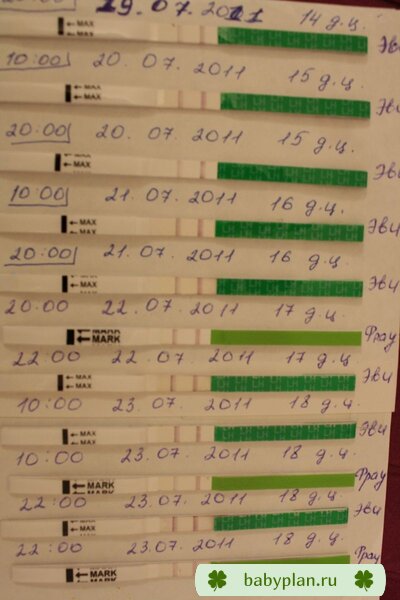 19.07.2011 14 д.ц.
← MAX
← MAX
Эви
10:00 20.07.2011 15 д.ц.
← MAX
← MAX
Эви
20:00 20.07.2011 15 д.ц.
← MAX
← MAX
Эви
10:00 21.07.2011 16 д.ц.
← MAX
← MAX
Эви
20:00 21.07.2011 16 д.ц.
← MAX
← MAX
Эви
20:00 22.07.2011 17 д.ц.
← MARK
← MARK
Фрау
22:00 22.07.2011 17 д.ц.
← MAX
← MAX
Эви
10:00 23.07.2011 18 д.ц.
← MAX
← MAX
Эви
10:00 23.07.2011 18 д.ц.
← MARK
← MARK
Фрау
22:00 23.07.2011 18 д.ц.
← MAX
← MAX
Эви
22:00 23.07.2011 18 д.ц.
← MARK
← MARK
Фрау
babyplan.ru